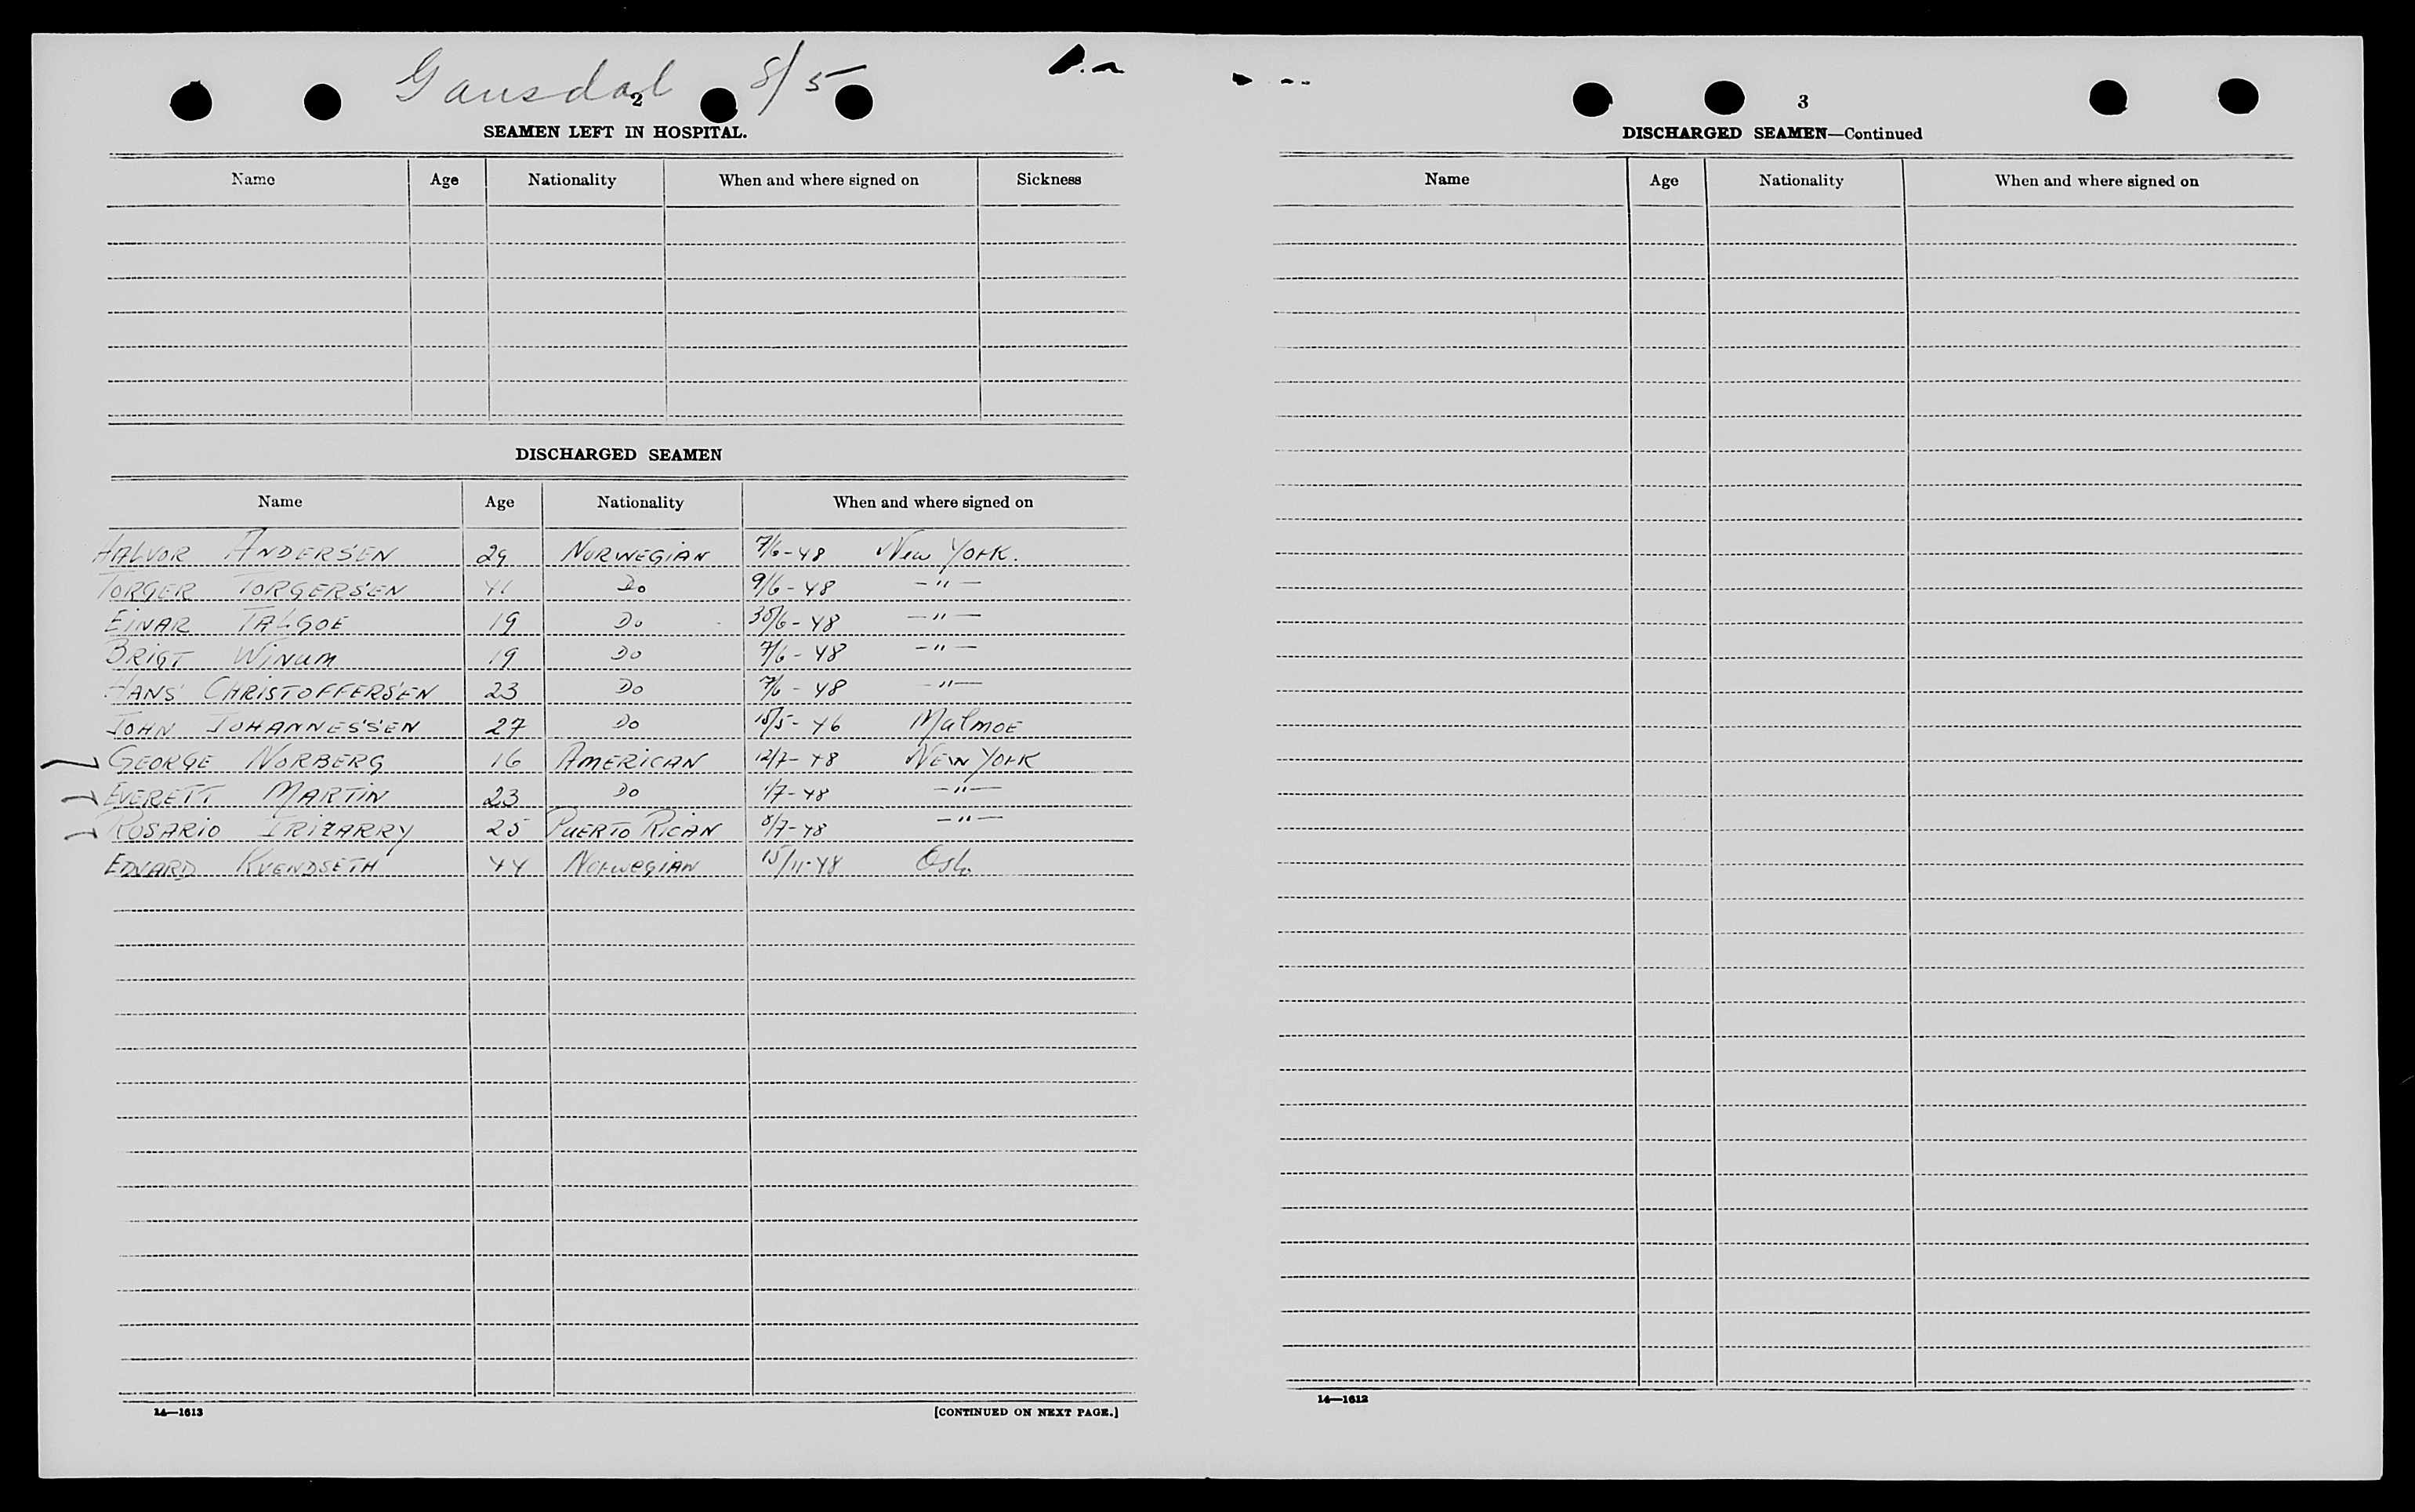 Gausdal 8/5
2
SEAMEN LEFT IN HOSPITAL.
Name Age Nationality When and where signed on Sickness
DISCHARGED SEAMEN
Name Age Nationality When and where signed on
HALVOR ANDERSEN 29 NORWEGIAN 7/6-48 New York.
TORGER TORGERSEN 41 Do 9/6-48 -"-
EINAR TALGOE 19 Do 30/6-48 -"-
BRIGT WINUM 19 Do 7/6-48 -"-
HANS CHRISTOFFERSEN 23 Do 7/6-48 -"-
JOHN JOHANNESSEN 27 Do 15/5-46 Malmoe
GEORGE NORBERG 16 AMERICAN 12/7-48 NEW YORK
EVERETT MARTIN 23 Do 1/7-48 -"-
ROSARIO IRIZARRY 25 PUERTO RICAN 8/7-48 -"-
EDVARD KVENDSETH 44 Norwegian 15/11-48 Oslo
14—1613
[CONTINUED ON NEXT PAGE.]
3
DISCHARGED SEAMEN—Continued
Name Age Nationality When and where signed on
14—1612